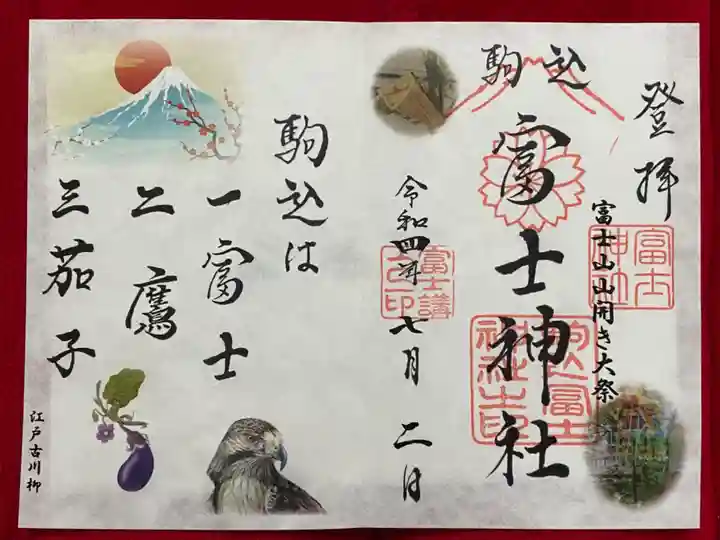 登拝
富士山山開き大祭
富士
神社
駒込
富士神社
駒込富士
神社之印
令和四年七月二日
富士講
之印
駒込は
一富士
二鷹
三茄子
江戸古川柳